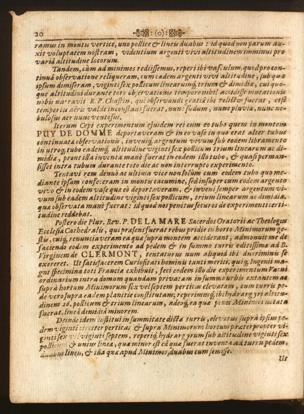 20 (o)
ramus in montis vertice, uno pollice & lineis duabus: id quod non parum au-
xit voluptatem nostram, videntium argenti vivi altitudinem imminui pro
varia altitudine locorum.
Tandem, cùm ad minimes rediissemus, reperi ibi vasculum, quod pro con-
tinuâ observatione reliqueram, cum eadem argenti vivi altitudine, sub quâ
ipsum dimiseram, viginti sex pollicum linearumq; trium & dimidiæ, cui que-
que altitudini durante tota observatione temporaneâ accidisse mutationem
nobis narravit R. P. Chastin, qui observaverat eâ totâ die
temperies aëris valde inconstans fuerat, nunc sudum, nunc pluvia, nunc ne-
bulosus aer nunc ventosus.
Iterum cœpi experimentum ejusdem rei cum eo tubo quem in montem
PUY DE DOMME deportaveram & in eo vase in quo erat alter tubus
continuatæ observationis, inveniq; argentum vivum sub eodem libramento
in utroq; tubo eademq; altitudine viginti sex pollicum trium linearum ac di-
midiæ, prout illa inventa manè fuerat in eodem isto tubo, & quasi perman-
sisset intra tubum durante toto die ac non interrupto experimento.
Tentavi rem denuò ac ultimâ vice non solum cum eodem tubo quo me-
diante ipsum confeceram in montis cacumine, sed insuper cum eodem argento
vivo & in eodem vase quæ eò deportaveram, & inveni semper argentum vi-
vum sub eadem altitudine viginti sex pollicum, trium linearum ac dimidia,
quæ observata manè fuerat: id quod nos penitus securos de experimenti certi-
tudine reddebat.
Postero die Plur. Rev. P. DE LA MARE Sacerdos Oratorii ac Theologus
Ecclesiæ Cathedralis, qui præsens fuerat rebus pridie in horto Minimorum ge-
stis, cuiq; renunciaveram ea quæ supra montem acciderant, admonuit me de
faciendo eodem experimento ad pedem & in summo turris editissima ad B.
Virginem de CLERMONT, tentaturus num aliquid ibi discriminis se
exereret. Ut satisfacerem Curiositati hominis tanti meriti, quiq; Ingenii ma-
gni specimina toti Franciæ exhibuit, feci eodem isto die experimentum Vacui
ordinarium intra domum quandam privatam in summo urbis extantem ac
supra hortum Minimorum sex vel septem perticis elevatam, cum turris pe-
de verò supra eadem planitie constitutam; reperimus ibi hydrargyri altitu-
dinem 26, pollicum & trium linearum, adeoq; ea quæ penes Minimos notata
fuerat, lineâ dimidiâ minorem.
Deinde idem institui in summitate dictæ turris, elevatus supra ipsius pe-
viginti perticis & supra Minimorum hortum præterpropter vi-
ginti septem, reperiq; hydrargyrum sub altitudine viginti sex
& unius lineæ, quæ minor est eâ quæ fuerat inventa ad turris pedem,
lineis, & ista quæ apud Minimos duabus cum semisse.
Ut